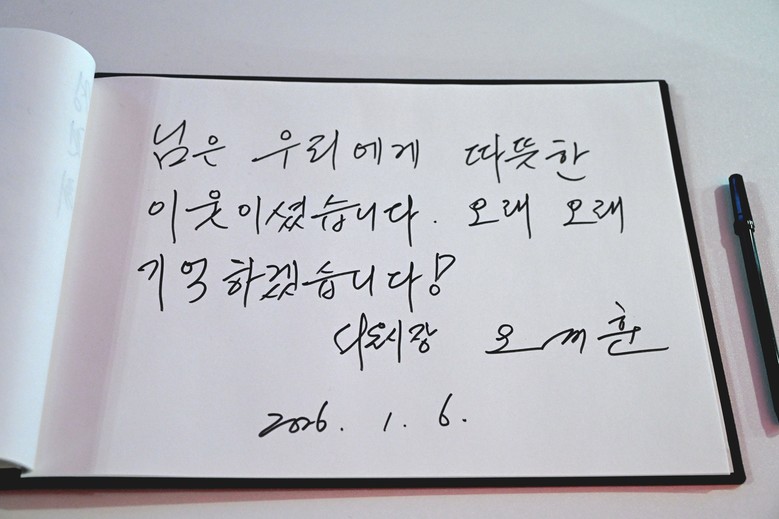 님은 우리에게 따뜻한
이웃이셨습니다. 오래 오래
기억하겠습니다!
서울시장 오세훈
2026. 1. 6.